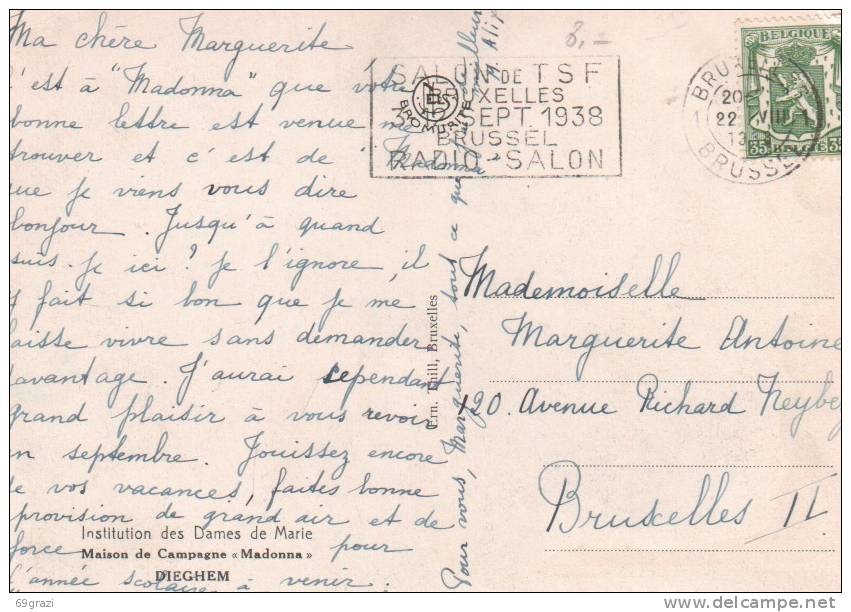 Ma chère Marguerite
C'est à "Madonna" que votre
bonne lettre est venue me
trouver et c'est de "Madonna"
que je viens vous dire
bonjour. Jusqu'à quand
suis-je ici? Je l'ignore, il
y fait si bon que je me
laisse vivre sans demander
davantage. J'aurai cependant
grand plaisir à vous revoir
en septembre. Jouissez encore
de vos vacances, faites bonne
provision de grand air et de
force pour
l'année scolaire à venir.
Institution des Dames de Marie
Maison de Campagne «Madonna»
DIEGHEM
Pour vous, Marguerite, tout ce que meilleur
M. Alip
Ern. Thill, Bruxelles
BROMURITE
8,-
SALON DE TSF
BRUXELLES
SEPT 1938
BRUSSEL
RADIO-SALON
20
22 VIII
BRUSSEL
BELGIQUE
BELGIE
35 35
Mademoiselle
Marguerite Antoine
120. Avenue Richard Neyberg
Bruxelles II
69grazi
www.delcampe.net